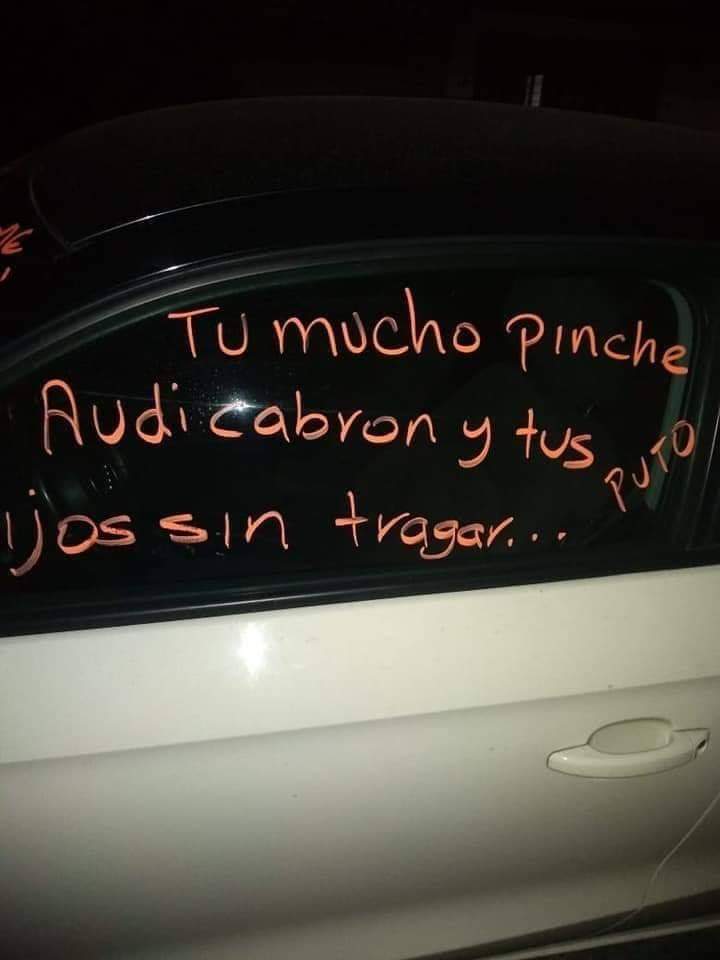 Tu mucho pinche
Audi cabron y tus
ijos sin tragar...
PUTO